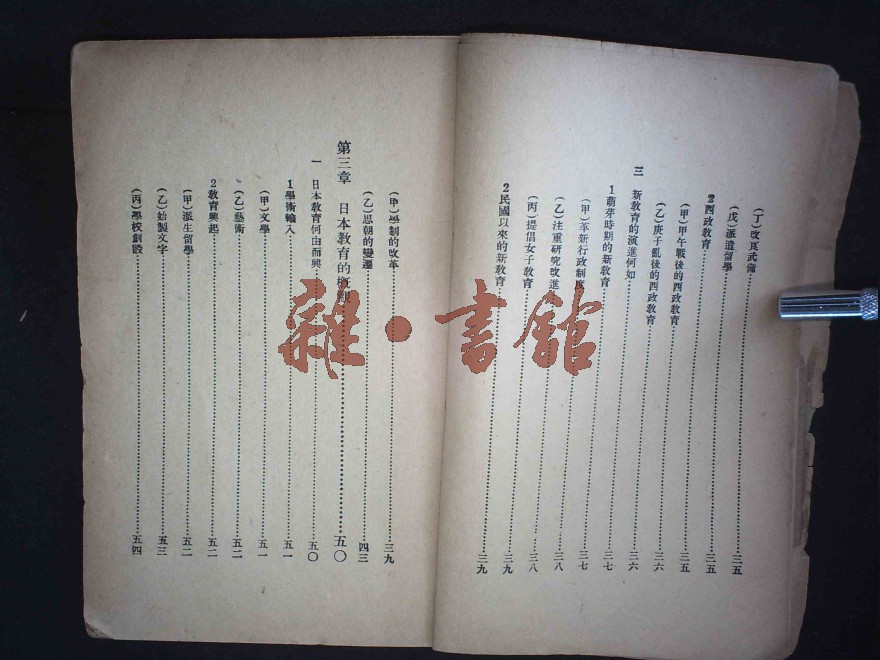 (丁)改良武備…………三五
(戊)派遣留學…………三五
2西政教育…………三五
(甲)甲午戰後的西政教育…………三五
(乙)庚子亂後的西政教育…………三六
三 新教育的演進何如…………三六
1萌芽時期的新教育…………三七
(甲)革新行政制度…………三七
(乙)注重研究改進…………三八
(丙)提倡女子教育…………三八
2民國以來的新教育…………三九
(甲)學制的改革…………三九
(乙)思潮的變遷…………四三
第三章 日本教育的概觀…………五〇
一 日本教育何由而興…………五〇
1學術輸入…………五一
(甲)文學…………五一
(乙)藝術…………五二
2教育興起…………五二
(甲)派生留學…………五二
(乙)始製文字…………五三
(丙)學校創設…………五四
雜·書館